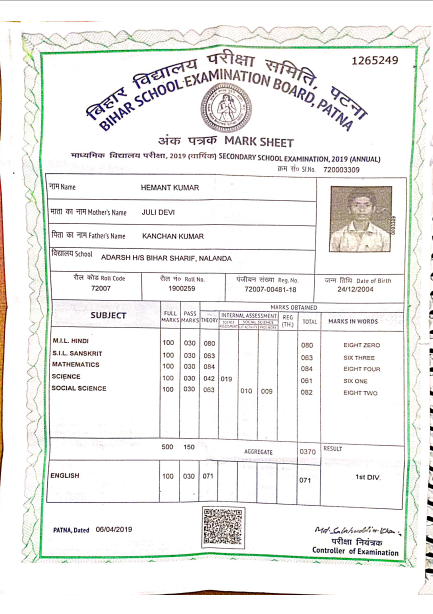 1265249
बिहार विद्यालय परीक्षा समिति, पटना
BIHAR SCHOOL EXAMINATION BOARD, PATNA
अंक पत्रक MARK SHEET
माध्यमिक विद्यालय परीक्षा, 2019 (वार्षिक) SECONDARY SCHOOL EXAMINATION, 2019 (ANNUAL)
क्रम सं० Sl.No. 720003309
नाम Name HEMANT KUMAR
माता का नाम Mother's Name JULI DEVI
पिता का नाम Father's Name KANCHAN KUMAR
विद्यालय School ADARSH H/S BIHAR SHARIF, NALANDA
रौल कोड Roll Code रौल न० Roll No. पंजीयन संख्या Reg. No. जन्म तिथि Date of Birth
72007 1900259 72007-00481-18 24/12/2004
MARKS OBTAINED
SUBJECT FULL MARKS PASS MARKS THEORY INTERNAL ASSESSMENT REG (TH.) TOTAL MARKS IN WORDS
M.I.L. HINDI 100 030 080 080 EIGHT ZERO
S.I.L. SANSKRIT 100 030 063 063 SIX THREE
MATHEMATICS 100 030 084 084 EIGHT FOUR
SCIENCE 100 030 042 019 061 SIX ONE
SOCIAL SCIENCE 100 030 063 010 009 082 EIGHT TWO
500 150 AGGREGATE 0370 RESULT
ENGLISH 100 030 071 071 1st DIV.
PATNA, Dated 06/04/2019
परीक्षा नियंत्रक
Controller of Examination